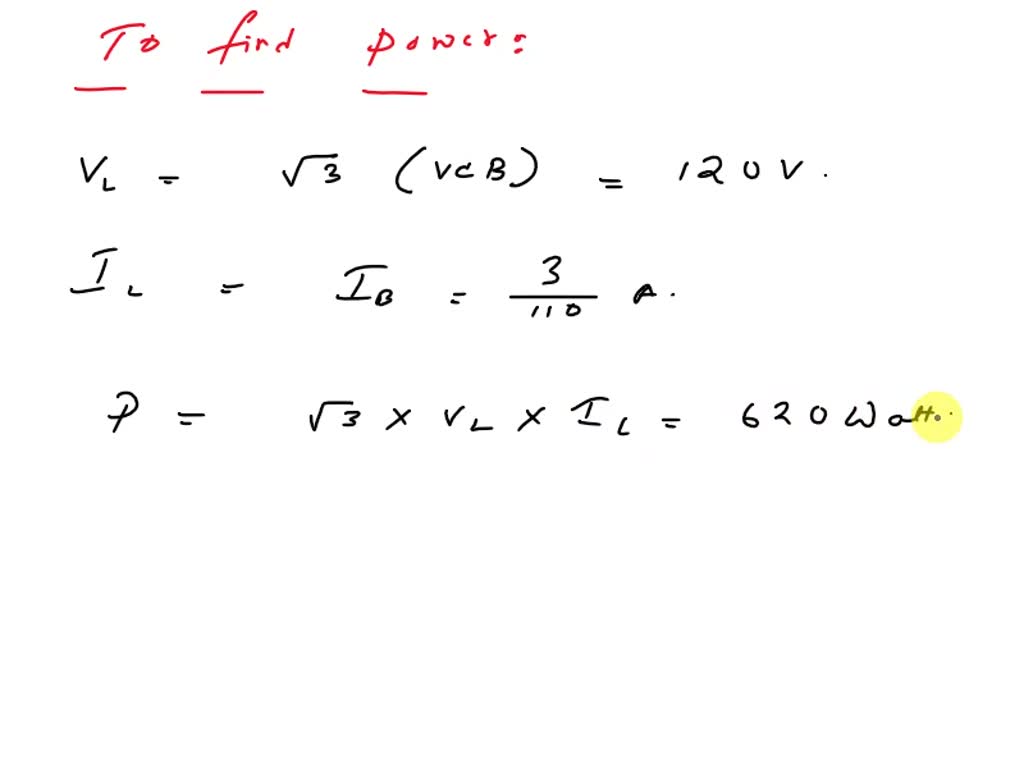 To find power:
V_L = √3 (VCB) = 120 V.
I_L = I_B = 3/110 A.
P = √3 × V_L × I_L = 620 Watt.